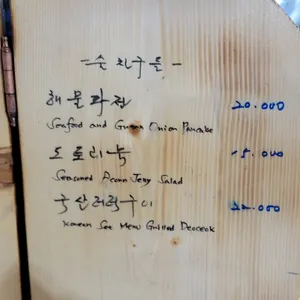 해물파전 20.000
Seafood and Green Onion Pancake
도토리묵 15.000
Seasoned Acorn Jelly Salad
국산더덕구이 22.000
Korean Grilled Deodeok